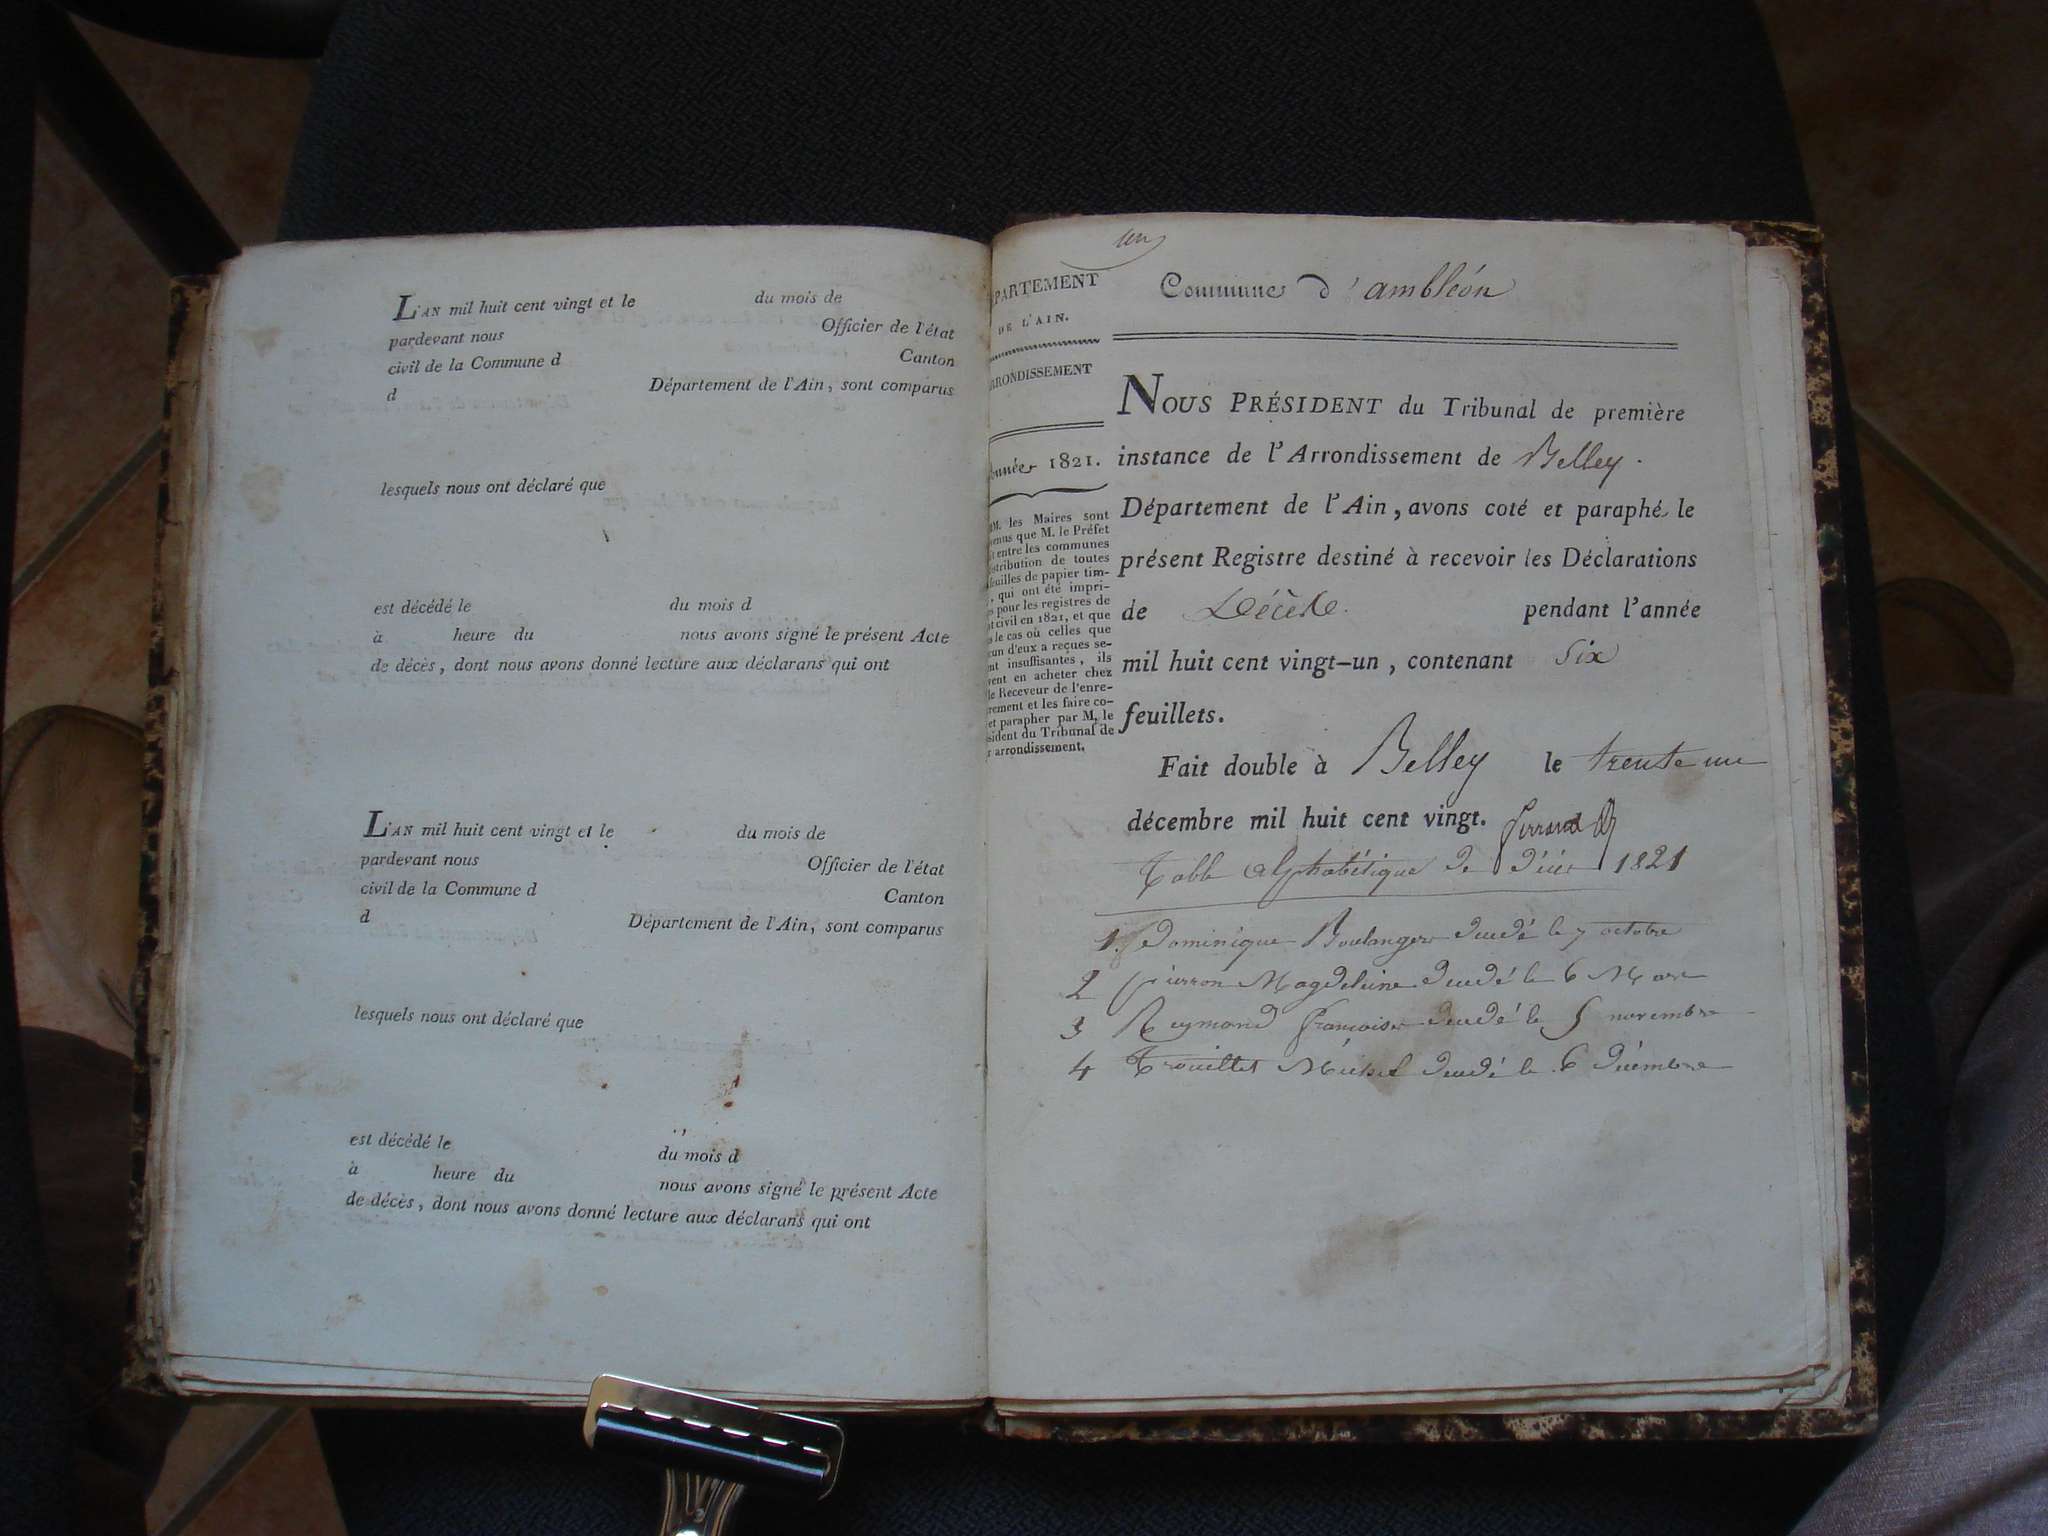 L'AN mil huit cent vingt et le du mois de
pardevant nous Officier de l'état
civil de la Commune d Canton
d Département de l'Ain, sont comparus
lesquels nous ont déclaré que
est décédé le du mois d
à heure du nous avons signé le présent Acte
de décès, dont nous avons donné lecture aux déclarans qui ont
L'AN mil huit cent vingt et le du mois de
pardevant nous Officier de l'état
civil de la Commune d Canton
d Département de l'Ain, sont comparus
lesquels nous ont déclaré que
est décédé le du mois d
à heure du nous avons signé le présent Acte
de décès, dont nous avons donné lecture aux déclarans qui ont
un
PARTEMENT
DE L'AIN.
RRONDISSEMENT
nnée 1821.
M. les Maires sont
venus que M. le Préfet
it entre les communes
stribution de toutes
feuilles de papier tim-
, qui ont été impri-
es pour les registres de
t civil en 1821, et que
s le cas où celles que
cun d'eux a reçues se-
nt insuffisantes, ils
vent en acheter chez
le Receveur de l'enre-
rement et les faire co-
et parapher par M. le
sident du Tribunal de
r arrondissement.
Commune d'ambléon
NOUS PRÉSIDENT du Tribunal de première
instance de l'Arrondissement de Belley.
Département de l'Ain, avons coté et paraphé le
présent Registre destiné à recevoir les Déclarations
de Décès. pendant l'année
mil huit cent vingt-un, contenant Six
feuillets.
Fait double à Belley le trente un
décembre mil huit cent vingt.
Table alphabétique de décès 1821
1 Dominique Boulanger décédé le 7 octobre
2 pierron Magdeleine décédé le 6 Mars
3 Reymond françoise décédé le 5 novembre
4 Trouillet Michel décédé le 6 décembre